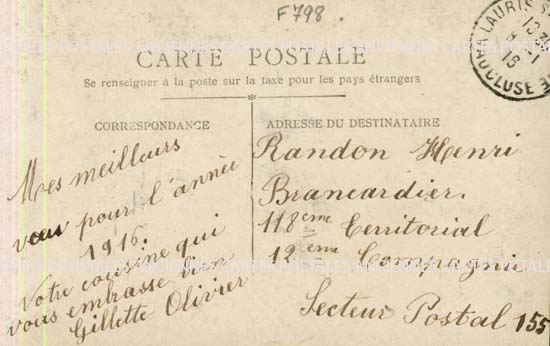 F798.
CARTE POSTALE
Se renseigner à la poste sur la taxe pour les pays étrangers
CORRESPONDANCE
Mes meilleurs
vœux pour l'année
1916
Votre cousine qui
vous embrasse bien
Gillette Olivier
ADRESSE DU DESTINATAIRE
Randon Henri
Brancardier.
118eme Territorial
12eme Compagnie
Secteur Postal 155
LAURIS
VAUCLUSE